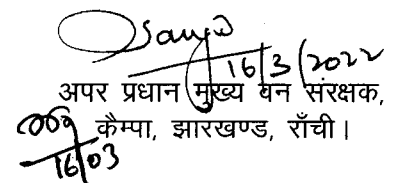 16/3/2022
अपर प्रधान मुख्य वन संरक्षक,
कैम्पा, झारखण्ड, राँची।
16/03